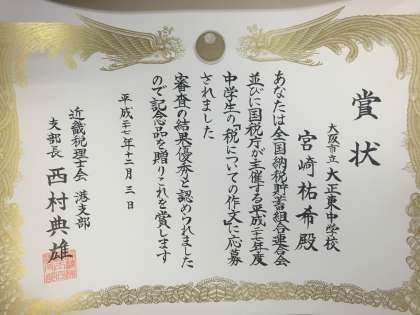 賞状
大阪市立 大正東中学校
宮崎祐希殿
あなたは全国納税貯蓄組合連合会
並びに国税庁が主催する平成二十七年度
中学生の「税についての作文」に応募
されました
審査の結果優秀と認められました
ので記念品を贈りこれを賞します
平成二十七年十二月三日
近畿税理士会 港支部
支部長 西村典雄